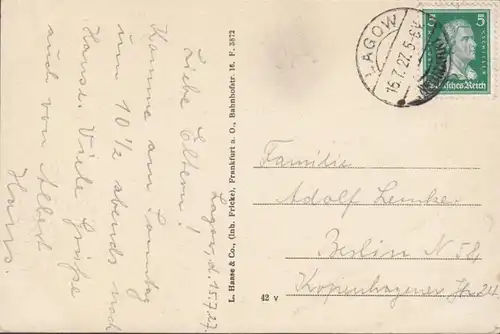 Lagow, d. 15.7.27.
Liebe Eltern!
Komme am Sonntag
um 10 1/2 abends nach
Hause. Viele Grüße
auch von Albert
Hans.
L. Haase & Co., (Inh. Fricke), Frankfurt a. O., Bahnhofstr. 16. F. 3872
42 v
LAGOW
15.7.27. 5-6
5
5
Deutsches Reich
Familie
Adolf Lemke
Berlin N 58
Kopenhagener Str. 24